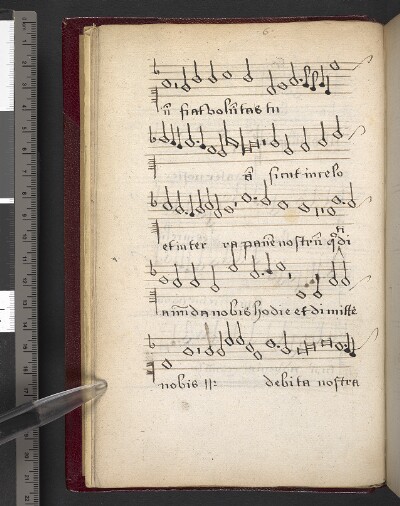 ū fiat volūtas tu
ā sicut in celo
et in ter ra panē nostrū q̄ti di
anū da nobis hodie et dimitte
nobis ij: debita nostra